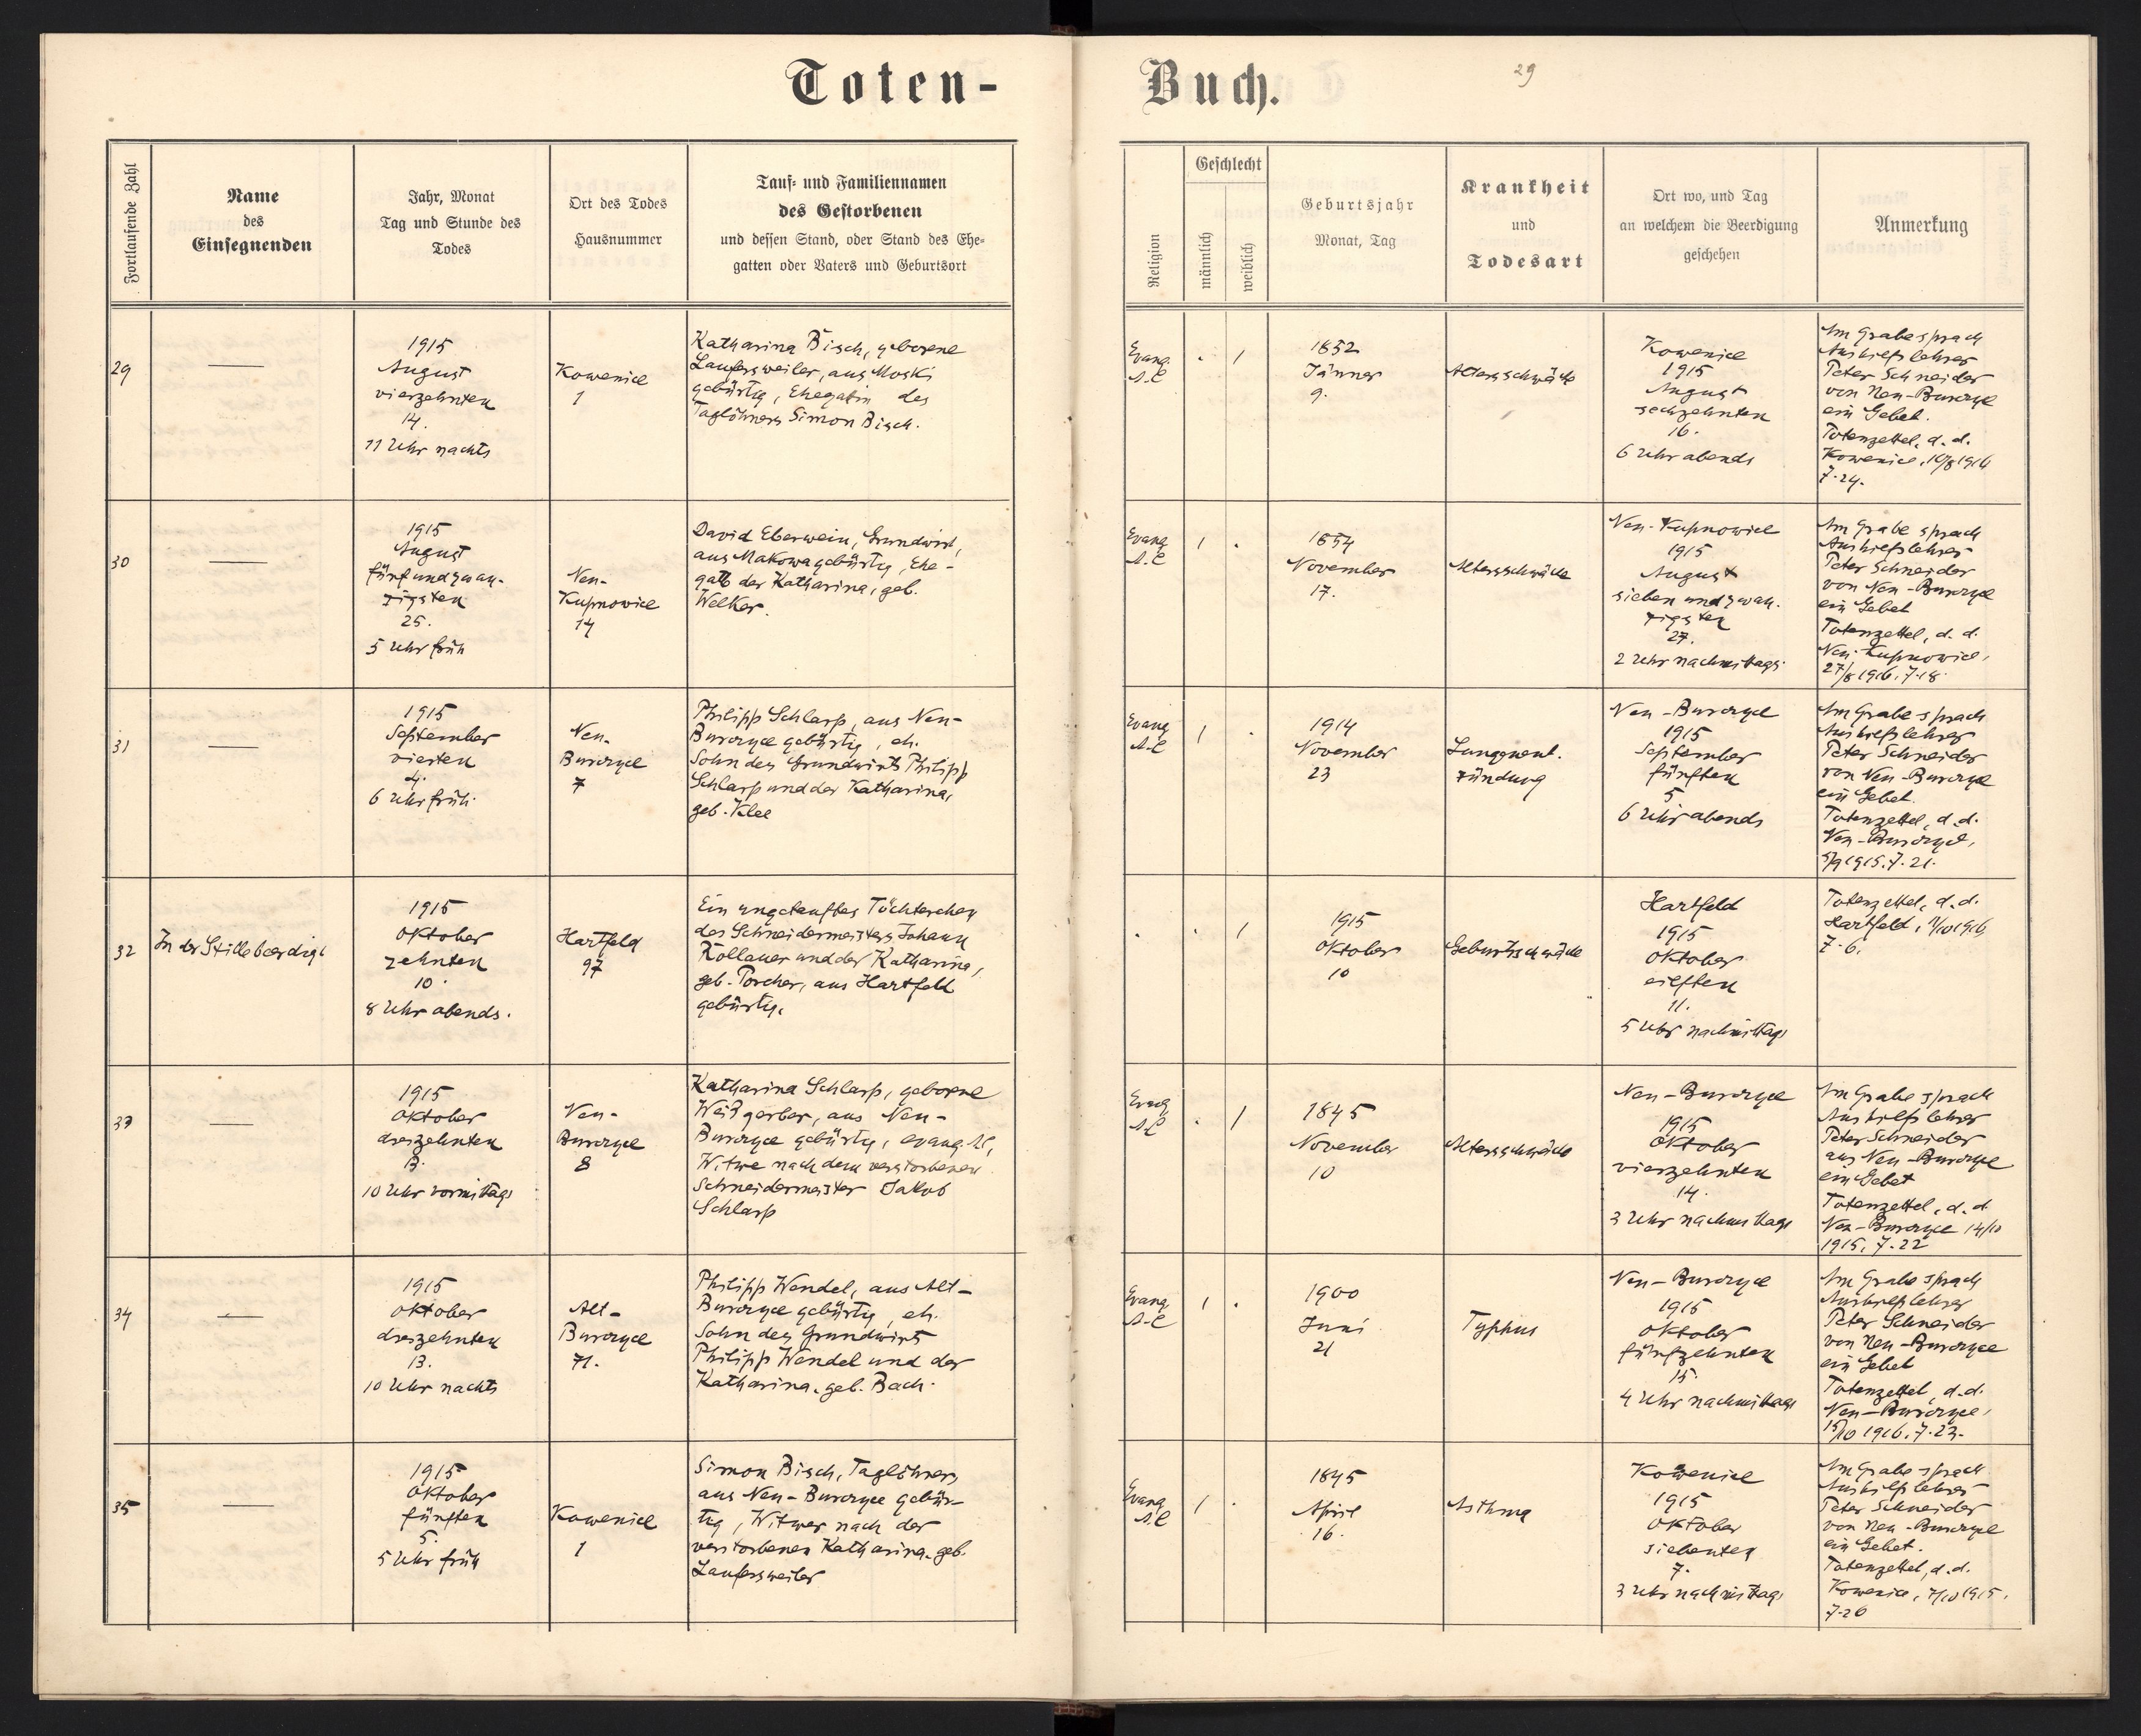 Toten-
Buch.
29
Fortlaufende Zahl
Name
des
Einsegnenden
Jahr, Monat
Tag und Stunde des
Todes
Ort des Todes
Hausnummer
Tauf- und Familiennamen
des Gestorbenen
und dessen Stand, oder Stand des Ehe-
gatten oder Vaters und Geburtsort
Religion
Geschlecht
männlich
weiblich
Geburtsjahr
Monat, Tag
Krankheit
und
Todesart
Ort wo, und Tag
an welchem die Beerdigung
geschehen
Anmerkung
29
—
1915
August
vierzehnten
14.
11 Uhr nachts
Kowenice
1
Katharina Bisch, geborene
Laufersweiler, aus Moski
gebürtig, Ehegatin des
Taglöhners Simon Bisch.
Evang.
A.C
. 1
1852
Jänner
9.
Altersschwäche
Kowenice
1915
August
sechzehnten
16.
6 Uhr abends
Am Grabe sprach
Aushilfslehrer
Peter Schneider
von Neu-Burczyce
ein Gebet.
Totenzettel, d. d.
Kowenice, 16/8 1916
7.24.
30
—
1915
August
fünfundzwan-
zigsten
25.
5 Uhr früh
Neu-
Kupnowice
14
David Eberwein, Grundwirt,
aus Makowa gebürtig, Ehe-
gatte der Katharina, geb.
Welker.
Evang.
A.C
1 .
1854
November
17.
Altersschwäche
Neu-Kupnowice
1915
August
sieben und zwan-
zigsten
27.
2 Uhr nachmittags
Am Grabe sprach
Aushilfslehrer
Peter Schneider
von Neu-Burczyce
ein Gebet
Totenzettel, d. d.
Neu-Kupnowice,
27/8 1916. 7.18.
31
—
1915
September
vierten
4.
6 Uhr früh.
Neu-
Burczyce
7
Philipp Schlarp, aus Neu-
Burczyce gebürtig, eh.
Sohn des Grundwirts Philipp
Schlarp und der Katharina,
geb. Klee
Evang.
A.C
1 .
1914
November
23
Lungenent-
zündung
Neu-Burczyce
1915
September
fünften
5
6 Uhr abends
Am Grabe sprach
Aushilfslehrer
Peter Schneider
von Neu-Burczyce
ein Gebet.
Totenzettel, d. d.
Neu-Burczyce,
5/9 1915. 7.21.
32
In der Stille beerdigt
1915
Oktober
zehnten
10.
8 Uhr abends.
Hartfeld
97
Ein ungetauftes Töchterchen
des Schneidermeisters Johann
Rollauer und der Katharina,
geb. Porcher, aus Hartfeld
gebürtig.
. . 1
1915
Oktober
10
Geburtsschwäche
Hartfeld
1915
Oktober
eilften
11.
5 Uhr nachmittags
Totenzettel, d. d.
Hartfeld, 11/10 1916
7.6.
33
—
1915
Oktober
dreizehnten
13.
10 Uhr vormittags
Neu-
Burczyce
8
Katharina Schlarp, geborene
Weißgerber, aus Neu-
Burczyce gebürtig, evang. A.C,
Witwe nach dem verstorbenen
Schneidermeister Jakob
Schlarp
Evang
A.C
. 1
1845
November
10
Altersschwäche
Neu-Burczyce
1915
Oktober
vierzehnten
14.
3 Uhr nachmittags
Am Grabe sprach
Aushilfslehrer
Peter Schneider
aus Neu-Burczyce
ein Gebet
Totenzettel, d. d.
Neu-Burczyce 14/10
1915. 7.22
34
—
1915
Oktober
dreizehnten
13.
10 Uhr nachts
Alt-
Burczyce
71.
Philipp Wendel, aus Alt-
Burczyce gebürtig, eh.
Sohn des Grundwirts
Philipp Wendel und der
Katharina, geb. Bach.
Evang
A.C
1 .
1900
Juni
21
Typhus
Neu-Burczyce
1915
Oktober
fünfzehnten
15.
4 Uhr nachmittags
Am Grabe sprach
Aushilfslehrer
Peter Schneider
von Neu-Burczyce
ein Gebet
Totenzettel, d. d.
Neu-Burczyce,
15/10 1916. 7.23.
35
—
1915
Oktober
fünften
5.
5 Uhr früh
Kowenice
1
Simon Bisch, Taglöhner,
aus Neu-Burczyce gebür-
tig, Witwer nach der
verstorbenen Katharina, geb.
Laufersweiler
Evang
A.C
1 .
1845
April
16.
Asthma
Kowenice
1915
Oktober
siebenten
7.
3 Uhr nachmittags
Am Grabe sprach
Aushilfslehrer
Peter Schneider
von Neu-Burczyce
ein Gebet.
Totenzettel, d. d.
Kowenice, 7/10 1915.
7.26